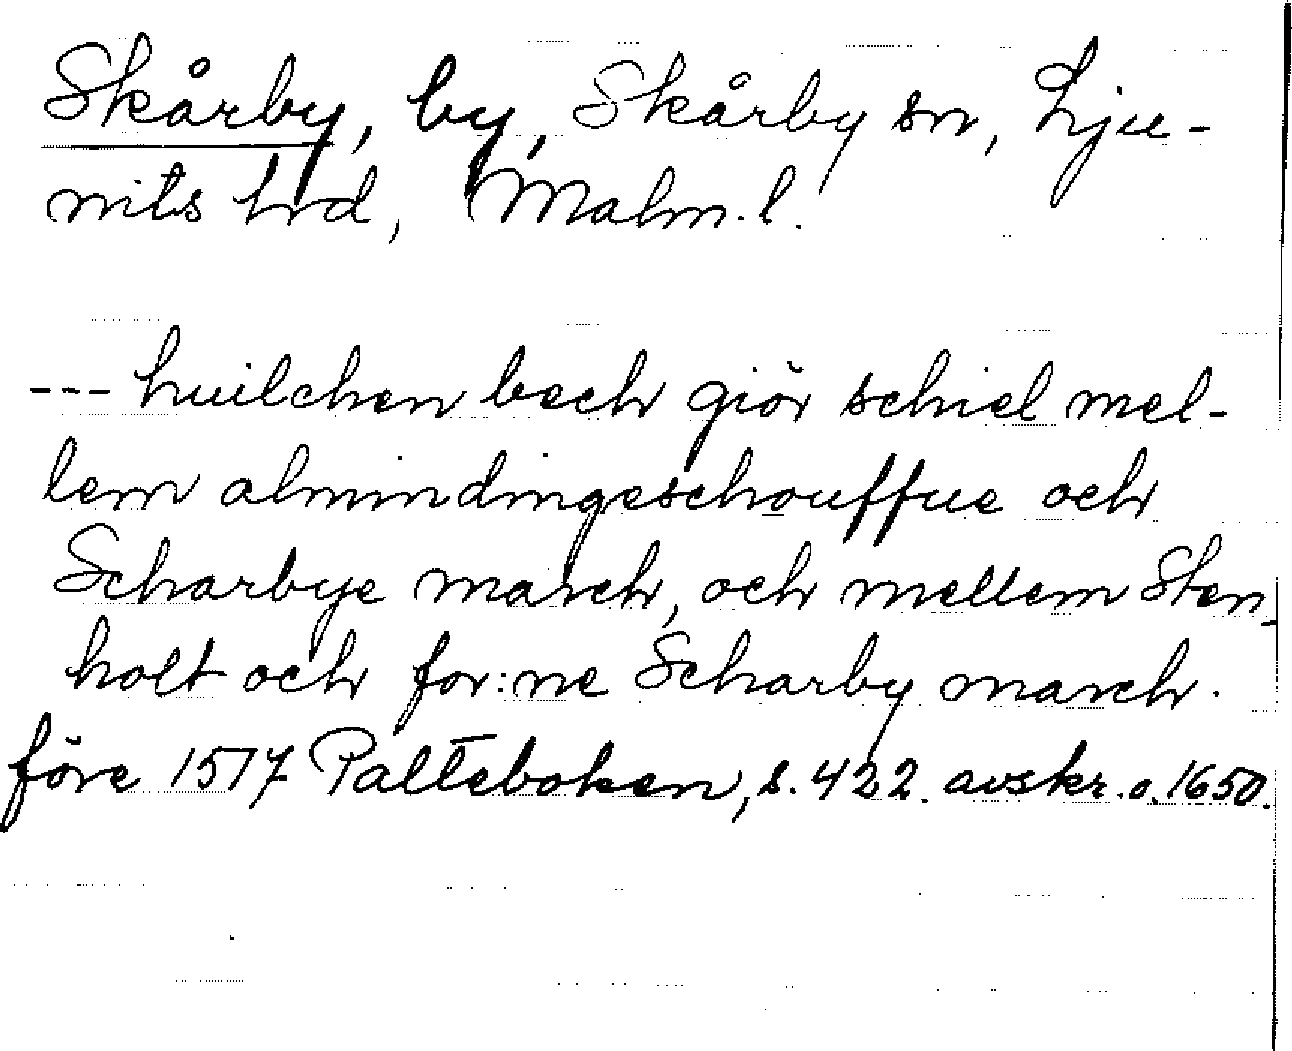 Skårby, by, Skårby sn, Lju-
nits hrd, Malm. l.
--- huilchen bech giör schiel mel-
lem almindingeschouffue och
Scharbye march, och mellem Sten-
holt och for:ne Scharby march.
före 1517 Palteboken, s. 422. avskr. o. 1650.